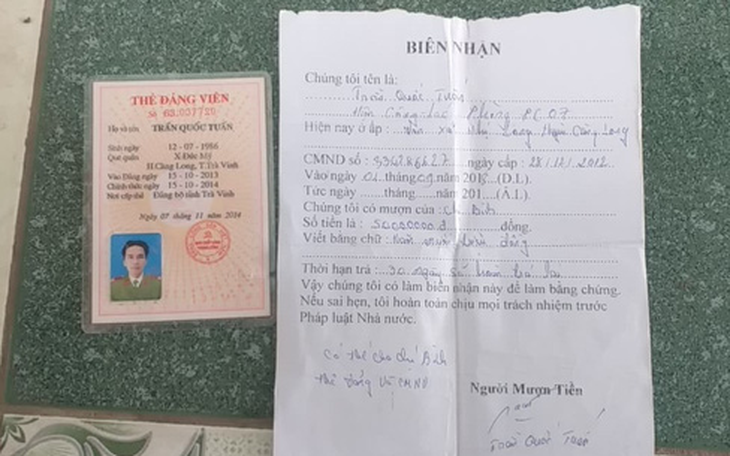 THẺ ĐẢNG VIÊN
Số 63.037729
Họ và tên TRẦN QUỐC TUẤN
Sinh ngày 12 - 07 - 1986
Quê quán X.Đức Mỹ
H.Càng Long, T.Trà Vinh
Vào Đảng ngày 15 - 10 - 2013
Chính thức ngày 15 - 10 - 2014
Nơi cấp thẻ Đảng bộ tỉnh Trà Vinh
Ngày 07 tháng 11 năm 2014
BIÊN NHẬN
Chúng tôi tên là:
Trần Quốc Tuấn
Phòng PC 07
Hiện nay ở ấp : Long Huyện Càng Long
CMND số : 334286627 ngày cấp : 28/12/2012
Vào ngày 01 tháng 09 năm 2018 (D.L).
Tức ngày.......tháng.......năm 201...(Â.L).
Chúng tôi có mượn của : Chị Bình
Số tiền là : 50.000.000 đ đồng.
Viết bằng chữ : Năm mươi triệu đồng
Thời hạn trả : 30 ngày sẽ hoàn trả lại
Vậy chúng tôi có làm biên nhận này để làm bằng chứng.
Nếu sai hẹn, tôi hoàn toàn chịu mọi trách nhiệm trước
Pháp luật Nhà nước.
Có thế cho chị Bình
thẻ Đảng và CMND
Người Mượn Tiền
Trần Quốc Tuấn